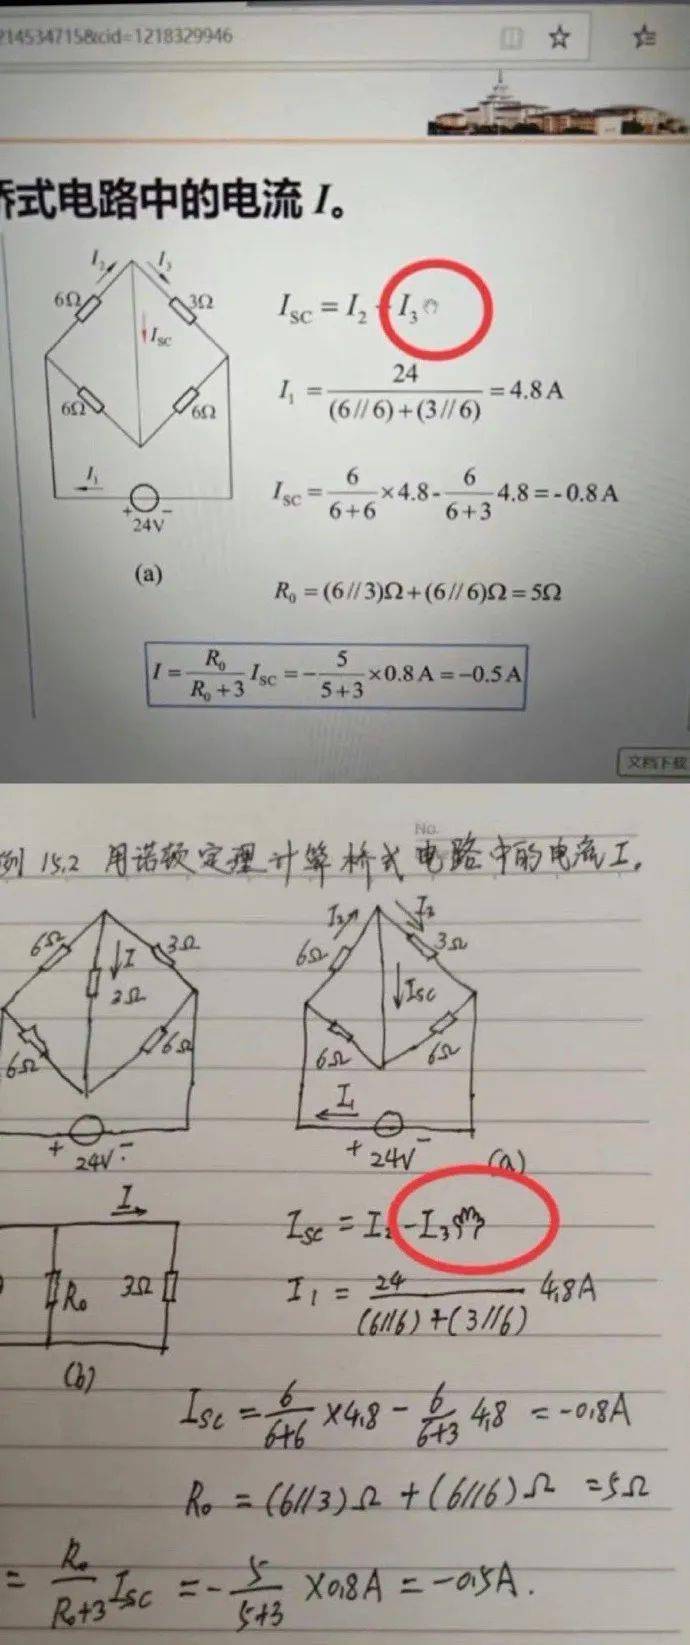 214534715&cid=1218329946
桥式电路中的电流 I。
I₂ I₃
6Ω 3Ω
I_SC
6Ω 6Ω
I₁
+ −
24V
(a)
I_SC = I₂ - I₃
I₁ = 24 / ((6//6)+(3//6)) = 4.8 A
I_SC = 6/(6+6) ×4.8- 6/(6+3) 4.8 = - 0.8 A
R₀ = (6//3)Ω+(6//6)Ω = 5Ω
I = R₀/(R₀+3) I_SC = - 5/(5+3) ×0.8 A = −0.5 A
文档下载
No.
例 15.2 用诺顿定理计算桥式电路中的电流 I。
6Ω 3Ω
I
3Ω
6Ω 6Ω
+ 24V -
I₂ I₃
6Ω 3Ω
Isc
6Ω 6Ω
I₁
+ 24V −
(a)
I
R₀ 3Ω
(b)
Isc = I₂ - I₃
I₁ = 24 / ((6//6)+(3//6)) 4.8A
Isc = 6/(6+6) ×4.8 - 6/(6+3) 4.8 = -0.8A
R₀ = (6//3)Ω + (6//6)Ω = 5Ω
= R₀/(R₀+3) Isc = - 5/(5+3) ×0.8A = -0.5A.